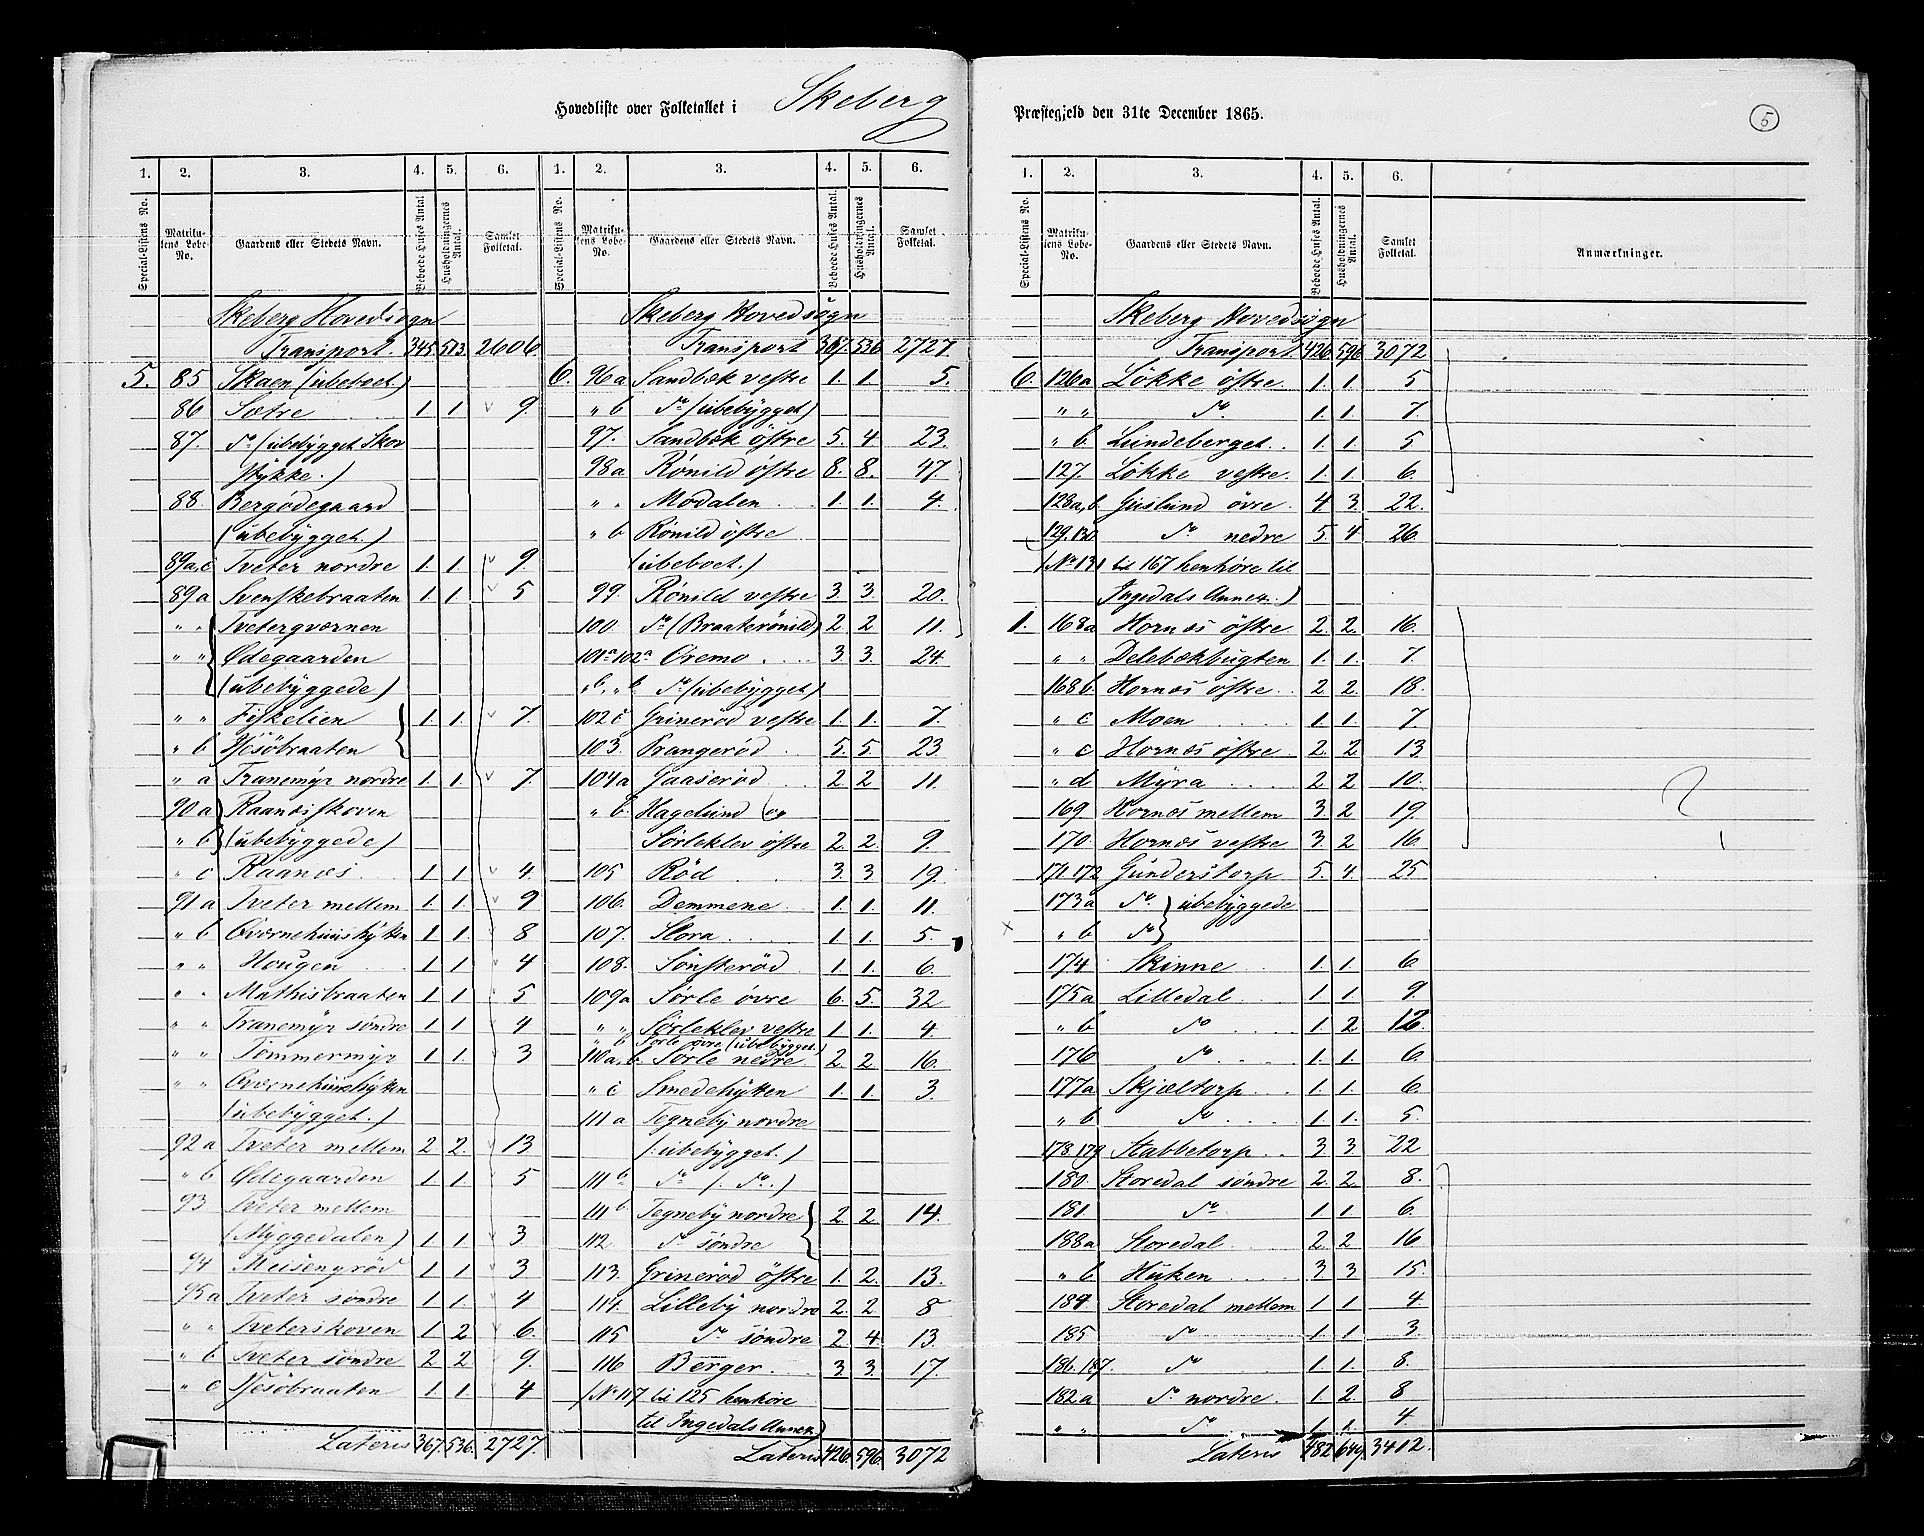 Hovedliste over Folketallet i Skeberg
1. 2. 3. 4. 5. 6. 1. 2. 3. 4. 5. 6.
Special-Listens No. Matrikulens Løbe-No. Gaardens eller Stedets Navn. Beboede Huses Antal. Husholdningernes Antal. Samlet Folketal. Special-Listens No. Matrikulens Løbe-No. Gaardens eller Stedets Navn. Beboede Huses Antal. Husholdningernes Antal. Samlet Folketal.
Skeberg Hovedsogn
Transport. 345 513 2606
5. 85 Skaen (übeboet.)
86 Sætre 1 1 9
87. Do (übebygget Skov
stykke.)
88. Bergødegaard
(übebygget.)
89a,c Tveter nordre 1. 1 9.
89a Svenskebraaten 1 1 5
" " Tvetergvernen
" " Ødegaarden
(übebyggede)
" " Fiskelien 1. 1. 7.
" b Tjesöbraaten
" a Tranemyr nordre 1. 1. 7.
90a Raanæsskoven
" b (übebyggede)
" c Raanæs 1 1 4.
91a Tveter mellem 1. 1. 9
" b Qværnehuushytten 1 1. 8
" " Hougen 1 1 4
" " Mathisbraaten 1 1 5
" " Tranemyr søndre 1 1 4
" " Tømmermyr 1 1. 3
" " Qværnehuushytten
(übebygget.)
92a Tveter mellem 2 2. 13
" b Ødegaarden 1 1. 5
93 Tveter mellem
(Myggedalen) 1 1. 3
94 Meisengrød 1 1 3
95a Tveter søndre 1 1. 4
" " Tveterskoven 1. 2 6.
" b Tveter søndre 2 2 9.
" c Tjesöbraaten 1. 1. 4
Lateris 367. 536. 2727.
Skeberg Hovedsogn
Transport 367. 536 2727.
6. 96a Sandbæk vestre 1. 1. 5.
" b Do (übebygget)
97. Sandbæk östre 5. 4 23.
98a Rönild östre 8. 8. 47.
" " Modalen 1. 1. 4.
" b Rönild östre
(übeboet.)
99. Rönild vestre 3. 3. 20.
100. Do (Braaterönild) 2. 2 11.
101a 102a Oremo 3. 3. 24.
" b, " b. Do (übebygget)
102c Grinerød vestre 1. 1. 7.
103. Prangerød 5. 5. 23
104a Gaaserød 2. 2 11.
" b. Hagelund (og
Sörleklev östre 2. 2. 9.
105 Röd 3. 3 19.
106. Demmene 1. 1. 11.
107. Slora 1 1. 5.
108. Sönsteröd 1. 1. 6.
109a Sörle övre 6. 5. 32
" " Sörleklev vestre 1. 1. 4.
" b Sorle övre (übebygget.)
110a, b. Sörle nedre 2. 2. 16.
" c Smedehytten 1. 1. 3.
111a Tegneby nordre
(übebygget.)
111b Do (Do.)
111b. Tegneby nordre 2. 2. 14.
112. Do søndre
113. Grineröd östre 1. 2. 13.
114. Lilleby nordre 2. 2. 8
115 Do søndre 2 4. 13.
116 Berger 3 3. 17.
(No 117 til 125 henhøre
til Ingedals Annex)
Lateris 426 596. 3072
Præstegjeld den 31te December 1865.
5
1. 2. 3. 4. 5. 6.
Special-Listens No. Matrikulens Løbe-No. Gaardens eller Stedets Navn. Beboede Huses Antal. Husholdningernes Antal. Samlet Folketal. Anmærkninger.
Skeberg Hovedsogn
Transport 426 596 3072
6. 126a Lökke östre 1. 1 5
" " Do. 1. 1. 7.
" b Lundeberget 1. 1. 5
127. Lökke vestre 1. 1. 6.
128a,b Guslund övre 4 3. 22.
129.130 Do nedre 5. 4 26.
(No 131 til 167 henhöre til
Ingedals Annex.)
1. 168a Hornæs östre 2. 2. 16.
" " Delebækbugten 1. 1. 7.
168b. Hornæs östre 2 2. 18.
" c Moen 1. 1 7
" c Hornæs östre 2. 2. 13
" d Myra 2 2 10.
169. Hornæs mellem 3. 2 19.
170. Hornæs vestre 3. 2 16.
171.172 Gunderstorp 5. 4. 25
173a Do. übebyggede
" b Do
174 Skinne 1. 1. 6.
175a Lilledal 1. 1 9.
" b Do 1. 2 12
176 Do 1. 1 6.
177a Skjæltorp 1. 1. 6.
" b Do 1. 1. 5.
178.179 Stabbetorp 3. 3 22
180. Storedal søndre 2. 2. 8.
181 Do 1 1 6.
188a Storedal 2. 2 16
" b Huken 3 3 15.
184 Storedal mellem 1 1 4.
185 Do 1. 1 3.
186.187. Do 1. 1. 8.
182a Do nordre 1. 2. 8
" " Do 1. 1. 4.
Lateris 482 649. 3412.